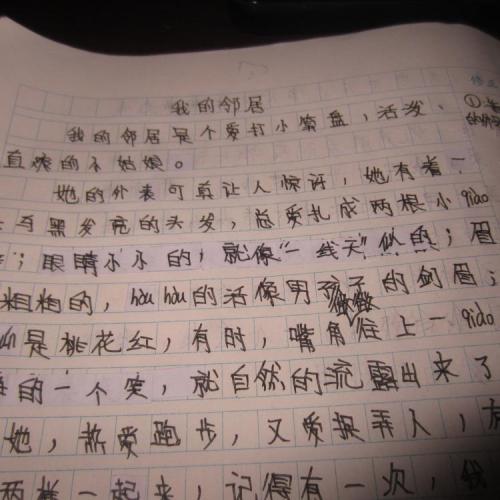 我的邻居
我的邻居是个爱打小算盘,活泼、
直爽的小姑娘。
她的外表可真让人惊讶,她有着一
乌黑发亮的头发,总爱扎成两根小qiào
;眼睛小小的,就像“一线天”似的;眉
粗粗的,hòu hòu的活像男孩子的剑眉;
是桃花红,有时,嘴角往上一qiào
的一个笑,就自然的流露出来了
她,热爱跑步,又爱捉弄人,
两样一起来,记得有一次,我